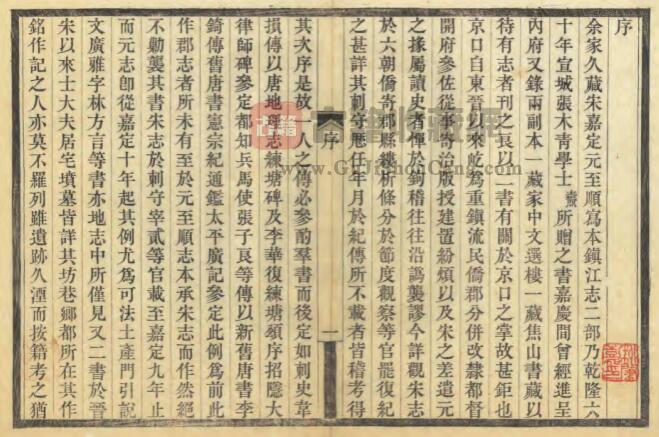 序
余家久藏朱嘉定元至順寫本鎮江志二部乃乾隆六
十年宣城張木青學士燾所贈之書嘉慶間曾經進呈
內府又錄兩副本一藏家中文選樓一藏焦山書藏以
待有志者刊之良以二書有關於京口之掌故甚鉅也
京口自東晉以來屹為重鎮流民僑郡分併改隸都督
開府參佐從事寄治版授建置紛煩以及朱之差遺元
之掾屬讀史者憚於鉤稽往往沿譌襲謬今詳觀朱志
於六朝僑寄郡縣縷析條分於節度觀察等官罷復紀
之甚詳其刺守歷任年月於紀傳所不載者皆稽考得
序
一
其次序是故一人之傳必參酌羣書而後定如刺史韋
損傳以唐地理志練塘碑及李華復練塘頌序招隱大
律師碑參定都知兵馬使張子良等傳以新舊唐書李
錡傳舊唐書憲宗紀通鑑太平廣記參定此例為前此
作郡志者所未有至於元至順志本承朱志而作然絕
不勦襲其書朱志於刺守宰貳等官載至嘉定九年止
而元志卽從嘉定十年起其例尤為可法土產門引說
文廣雅字林方言等書亦地志中所僅見又二書於晉
朱以來士大夫居宅墳墓皆詳其坊巷鄉都所在其作
銘作記之人亦莫不羅列雖遺跡久湮而按籍考之猶
古籍
www.GJiShouCang.com